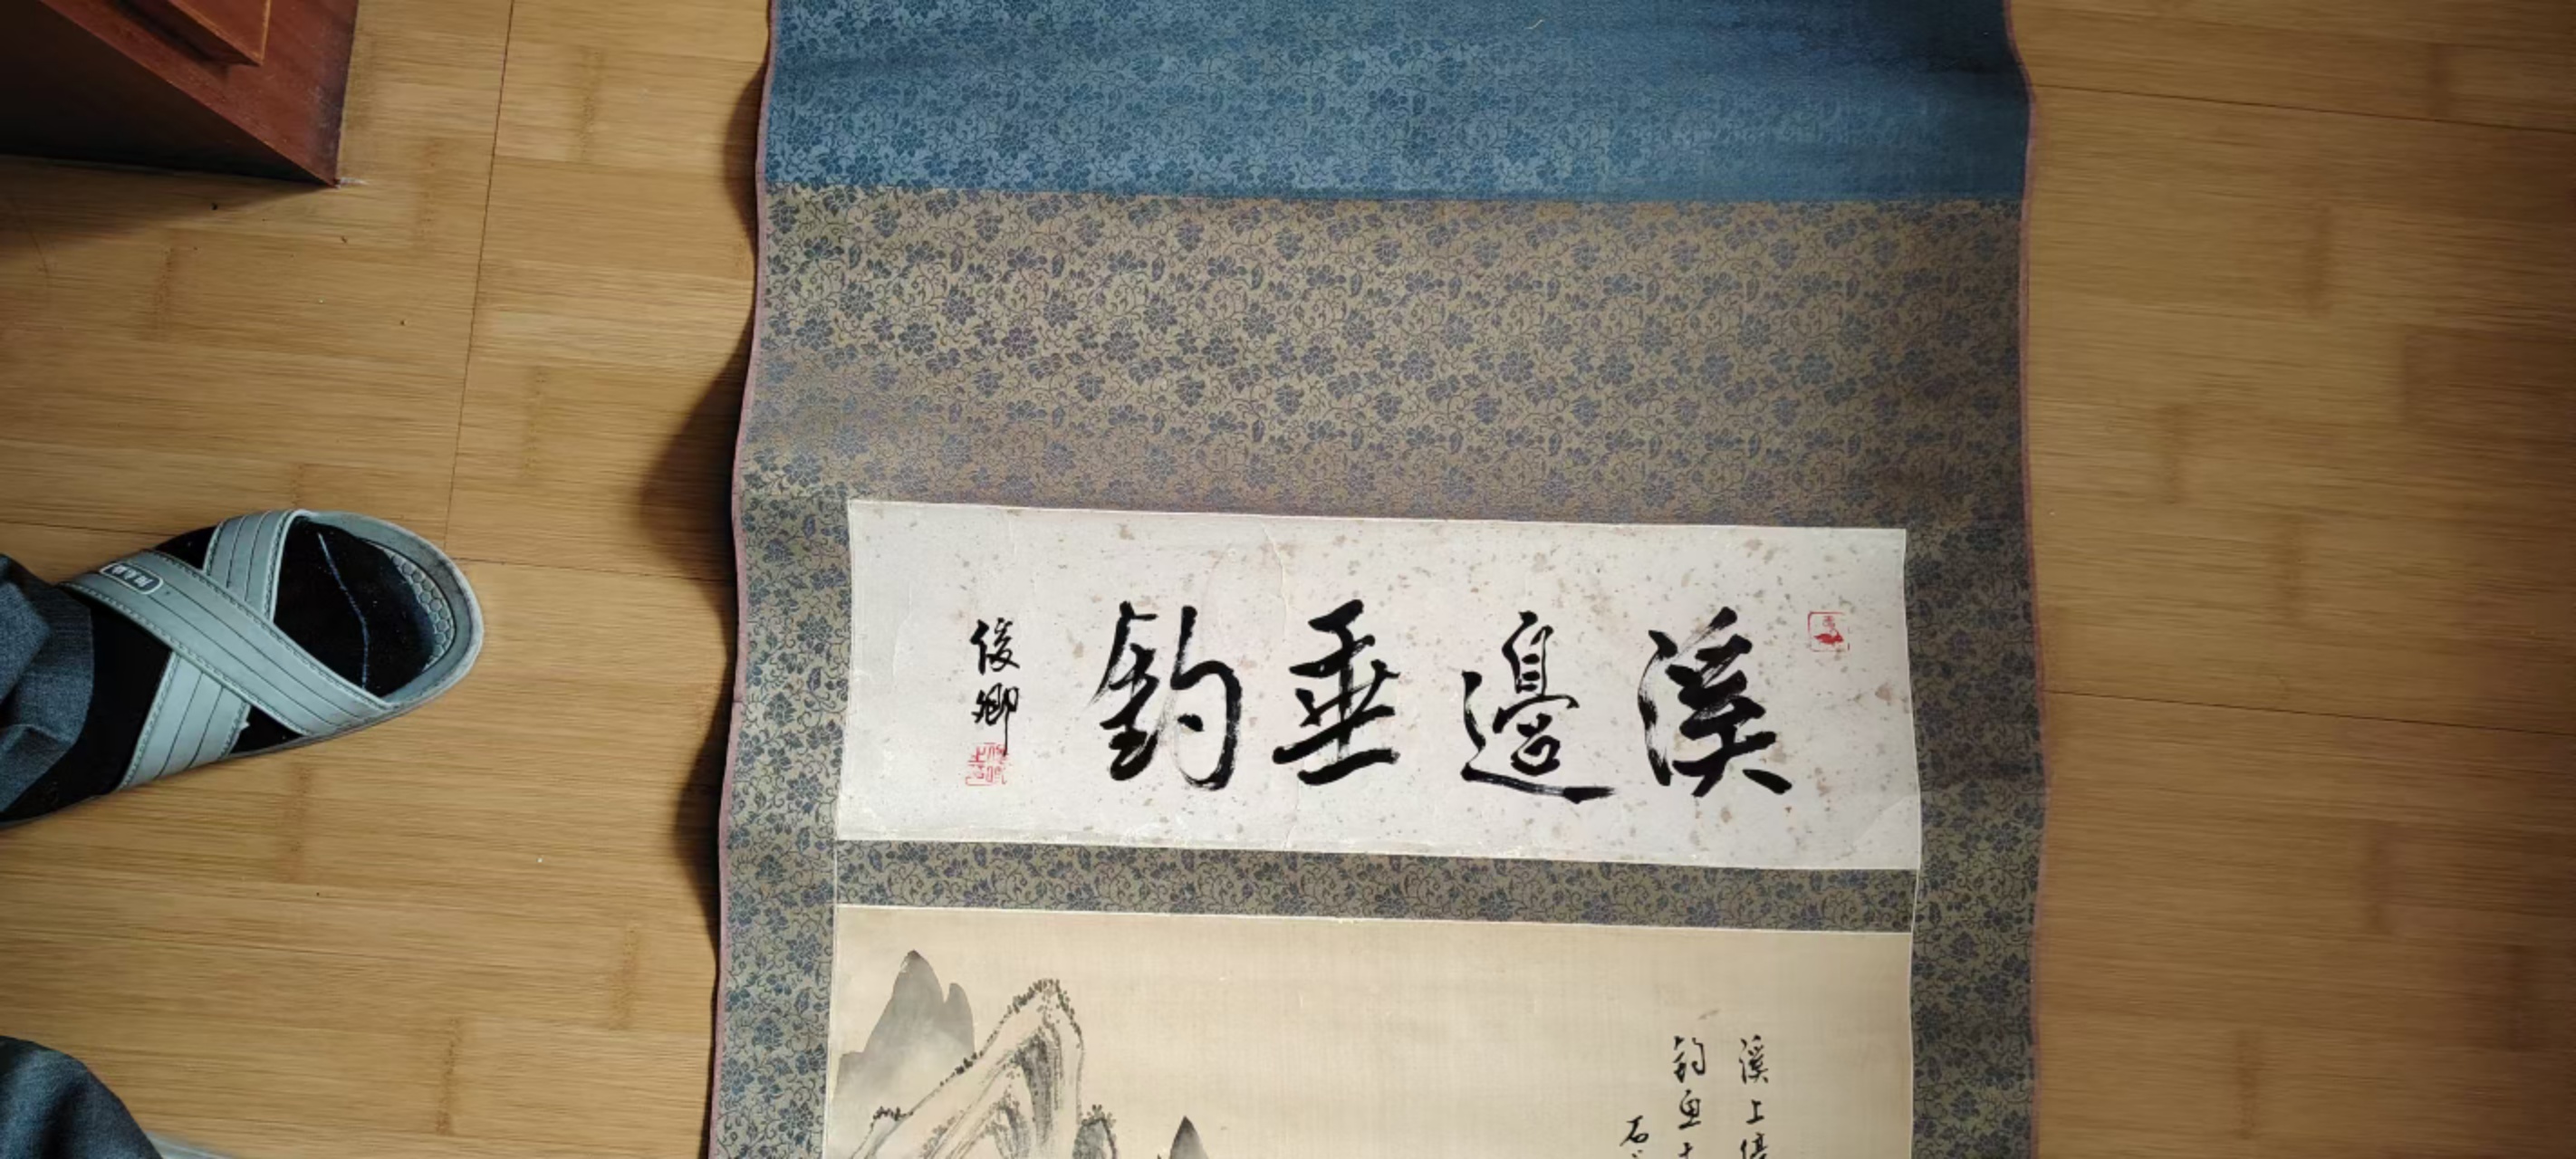 溪邊垂釣
俊卿
溪上
釣魚
石